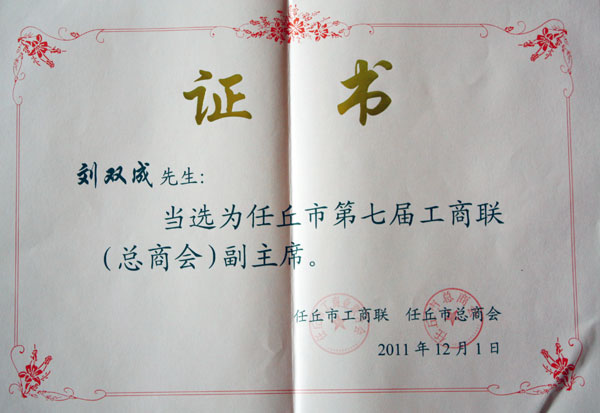 证书
刘双成先生:
当选为任丘市第七届工商联
(总商会)副主席。
任丘市工商联 任丘市总商会
2011年12月1日